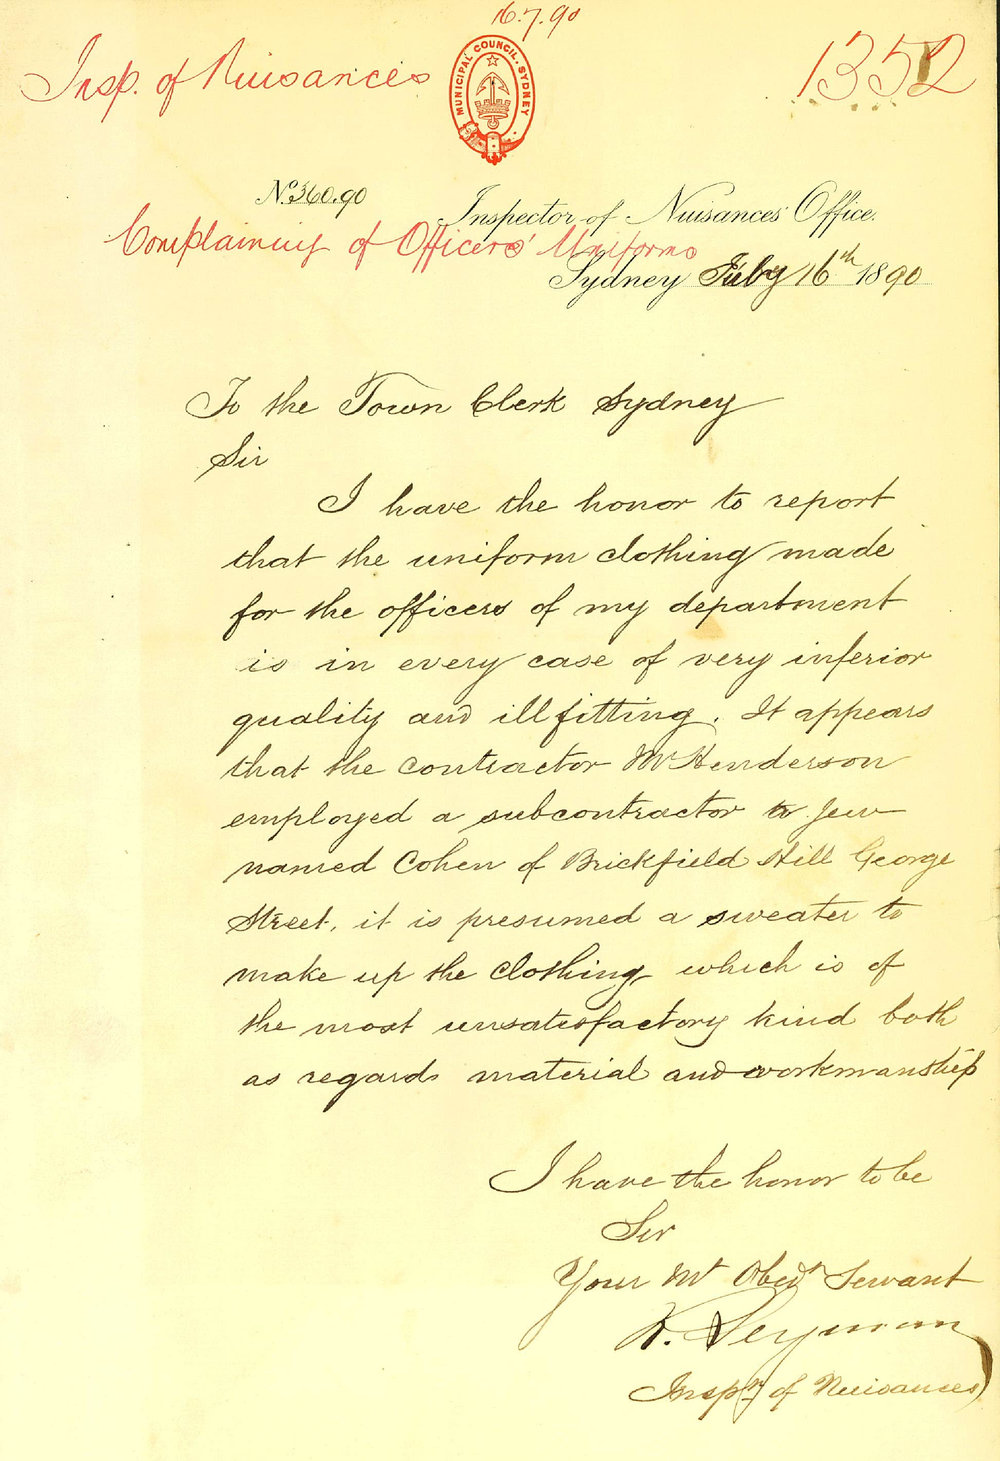 16.7.90
Insp. of Nuisances
MUNICIPAL COUNCIL. SYDNEY
1352
No. 360.90
Inspector of Nuisances' Office.
Complaining of Officers' Uniforms
Sydney July 16th 1890
To the Town Clerk Sydney
Sir
I have the honor to report
that the uniform clothing made
for the officers of my department
is in every case of very inferior
quality and illfitting. It appears
that the contractor Mr Henderson
employed a subcontractor a Jew
named Cohen of Brickfield Hill George
Street, it is presumed a sweater to
make up the clothing which is of
the most unsatisfactory kind both
as regards material and workmanship
I have the honor to be
Sir
Your Mt Obedt Servant
Seymour
Inspr of Nuisances